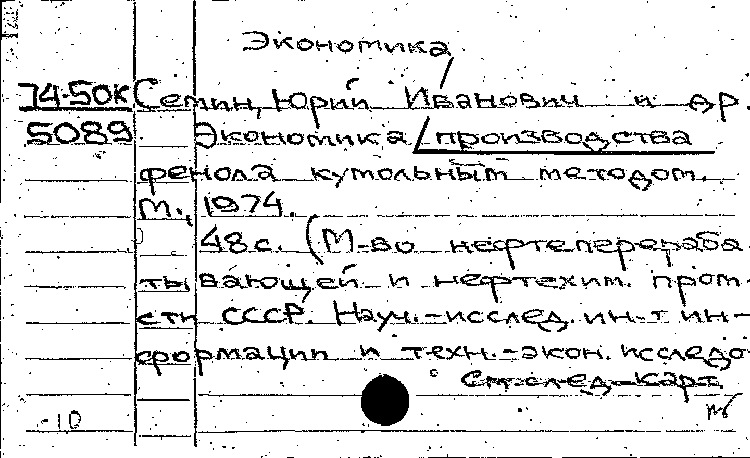 Экономика
74-50К Семин, Юрий Иванович и др
5089 Экономика производства
фенола кумольным методом.
М., 1974.
48с. (М-во нефтеперераба
тывающей и нефтехим. пром-
сти СССР. Науч.-исслед. ин-т ин-
формации и техн.-экон. исследо
См. след. карт.
-10